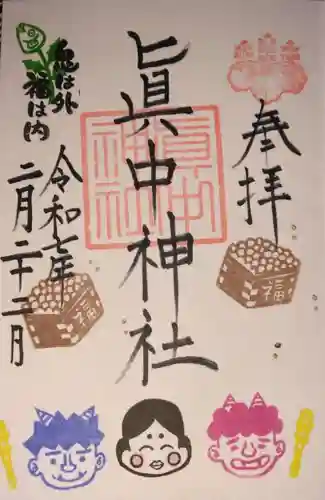 奉拝
眞中神社
眞中
神社
令和七年
二月二十二月
鬼は外
福は内
福
福